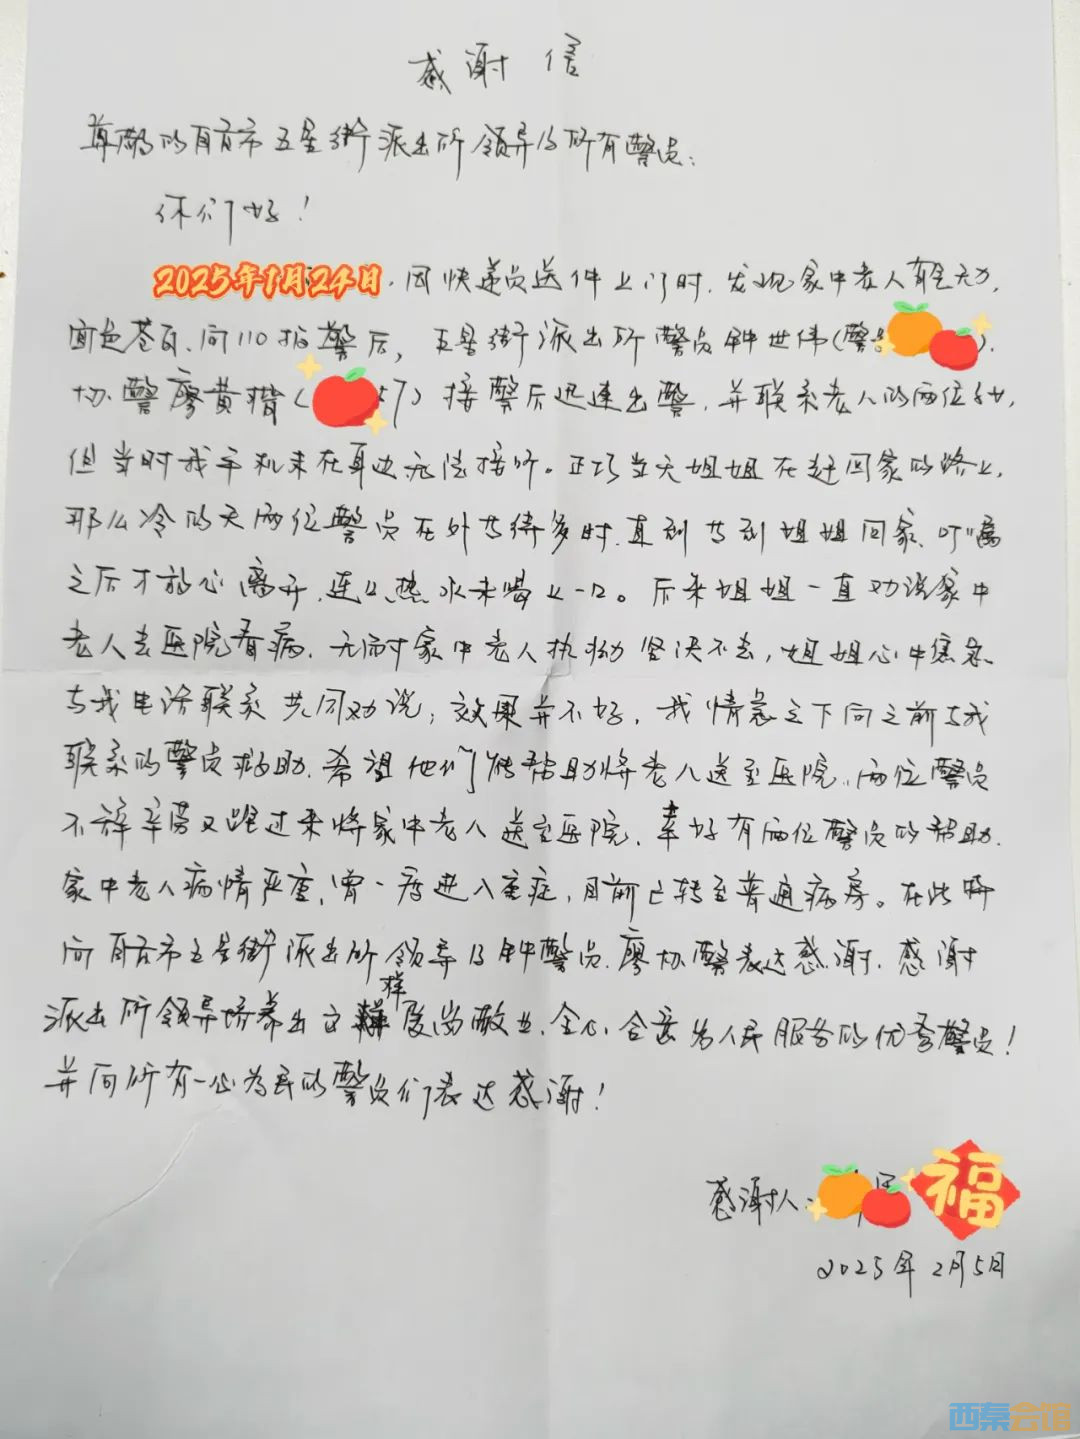 感谢信
尊敬的自贡市五星街派出所领导及所有警员:
你们好!
2025年1月24日.因快递员送件上门时.发现家中老人有气无力,
面色苍白、向110报警后,五星街派出所警员钟世伟(警号).
协警廖黄楷(57)接警后迅速出警.并联系老人的两位子女,
但当时我手机未在身边无法接听。正巧当天姐姐在赶回家的路上,
那么冷的天两位警员在外等待多时.直到等到姐姐回家、叮嘱
之后才放心离开.连口热水未喝上一口。后来姐姐一直劝说家中
老人去医院看病.无奈家中老人执拗坚决不去,姐姐心中焦急
与我电话联系共同劝说;效果并不好.我情急之下向之前与我
联系的警员求助.希望他们能帮助将老人送至医院.两位警员
不辞辛劳又跑过来将家中老人送至医院.幸好有两位警员的帮助.
家中老人病情严重,曾一度进入重症,目前已转至普通病房。在此特
向自贡市五星街派出所领导及钟警员.廖协警表达感谢.感谢
派出所领导培养出这样爱岗敬业.全心全意为人民服务的优秀警员!
并向所有一心为民的警员们表达感谢!
感谢人:
福
2025年2月5日
西秦会馆